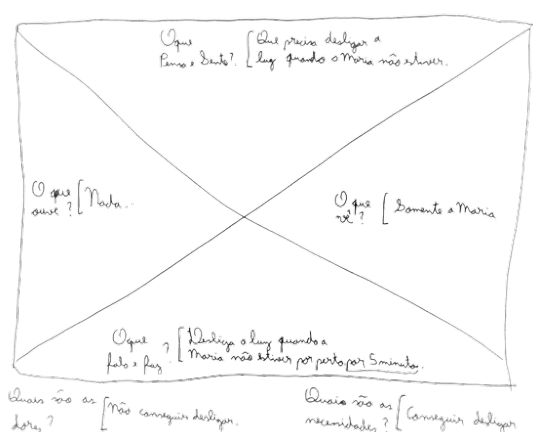 O que
Pensa e Sente? [Que precisa desligar a
luz quando a Maria não estiver.
O que
ouve? [Nada...
O que
vê? [Somente a Maria
O que
fala e faz? [Desliga a luz quando a
Maria não estiver por perto por 5 minutos.
Quais são as
dores? [Não conseguir desligar.
Quais são as
necessidades? [Conseguir desligar